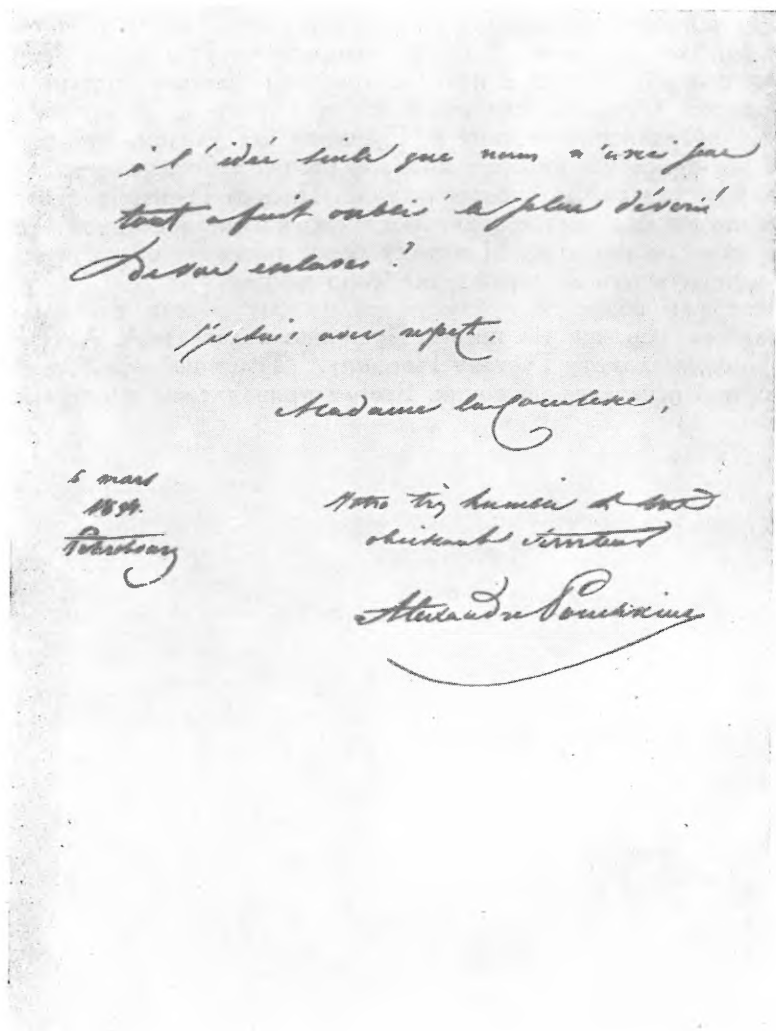 à l'idée seule que vous n'avez pas
tout à fait oublié le plus dévoué
de vos esclaves?
Je suis avec respect,
Madame la Comtesse,
5 mars
1834.
Pétersbourg
Votre très humble et tout
obéissant serviteur
Alexandre Pouchkine